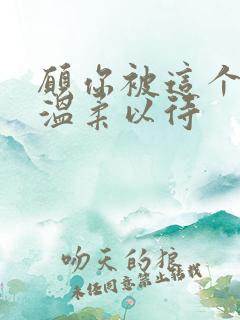 願你被這个
温柔以待
吻天的狼
未经同意禁止转载